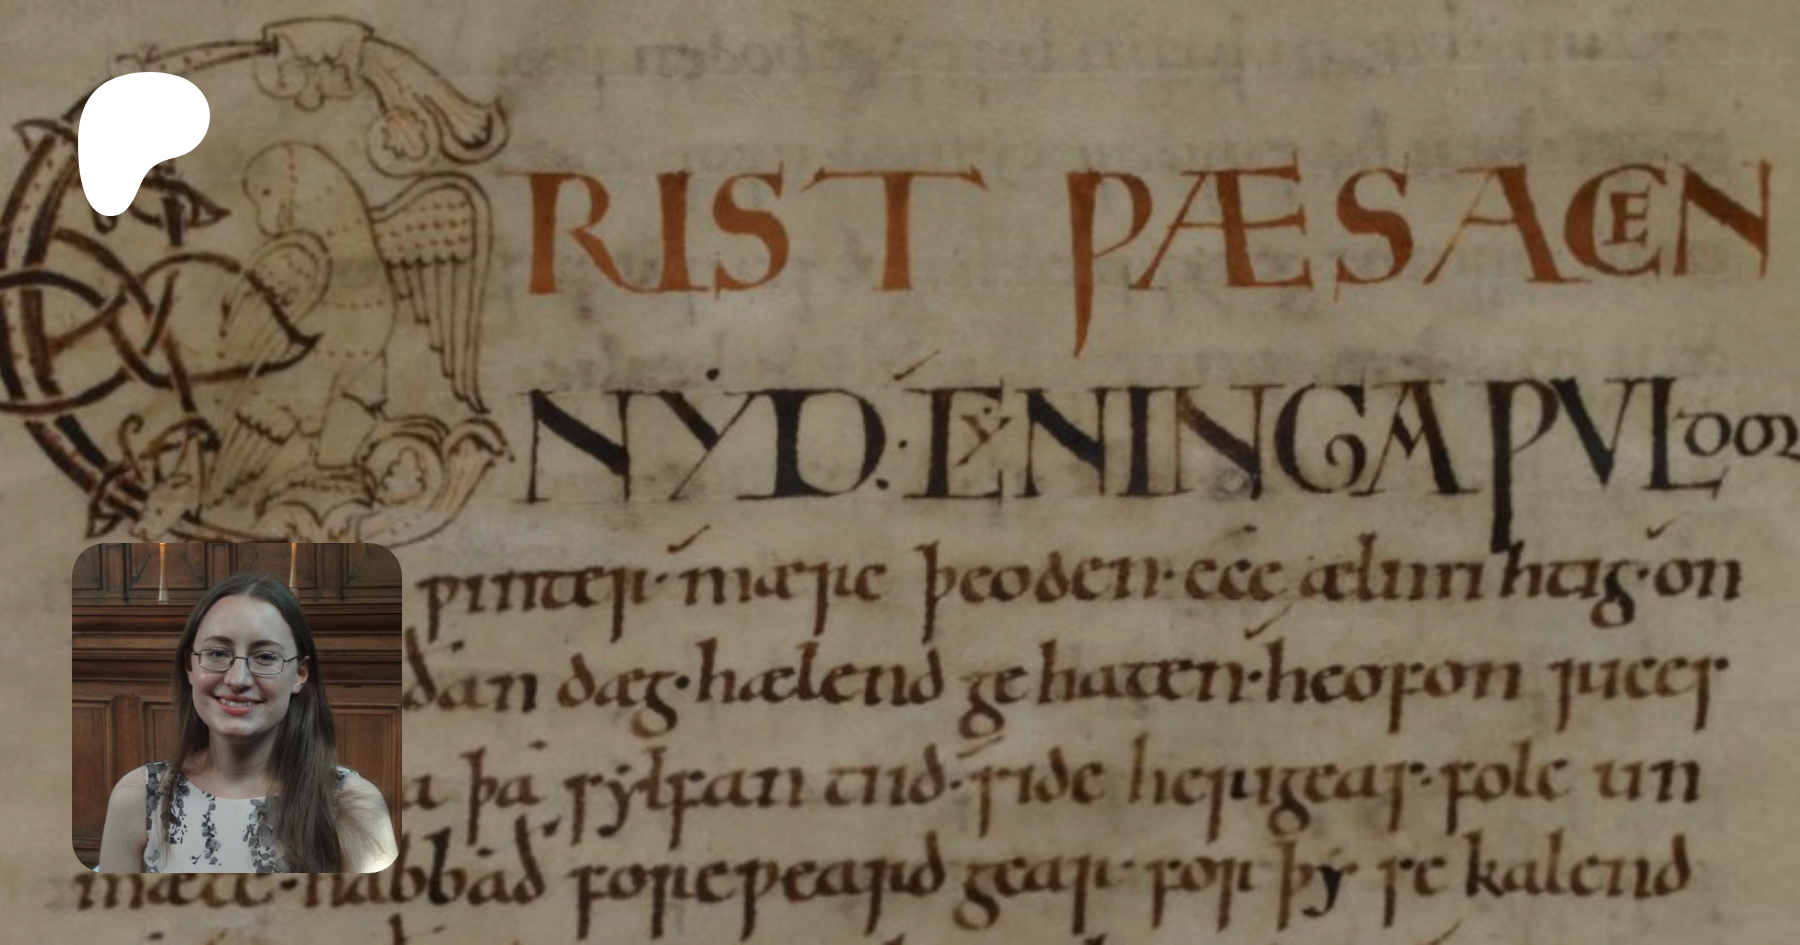 CRIST ǷÆS ACEN
NYD. CYNINGA ǷVLdor
ƿinter· mære þeoden· éce ælmihtig· on
ðan dæg· hælend ge haten· heofon rices
þa sylfan tiid· side herigeas· folc un
mæte· habbað foreƿeard gear· for þy se kalend